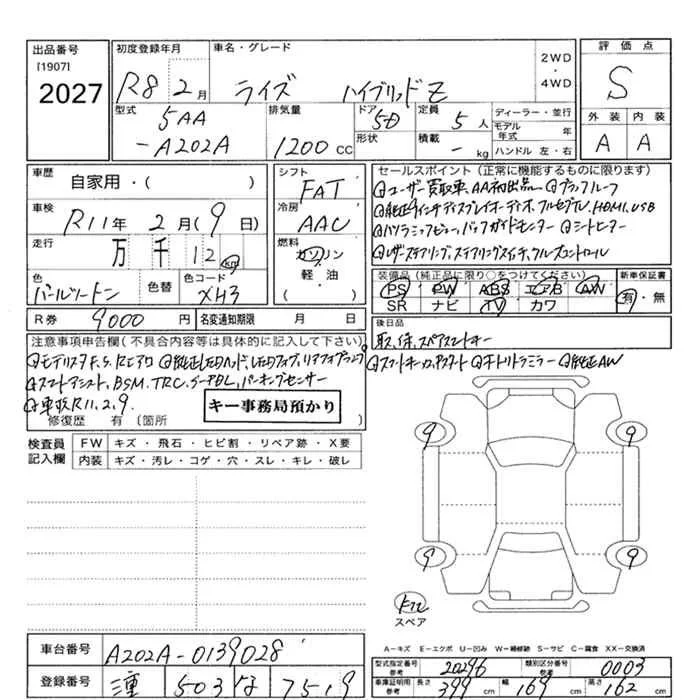 出品番号
[1907]
2027
初度登録年月
R8 2月
車名・グレード
ライズ ハイブリッドZ
2WD
・
4WD
評価点
S
外装 内装
A A
型式
5AA
-A202A
排気量
1200 CC
ドア
5D
形状
定員
5人
積載
- kg
ディーラー・並行
モデル年式 年
ハンドル 左・右
車歴
自家用・( )
車検
R11年 2月(9日)
走行
万 千 12 km
色
パールツートン
色替
色コード
XH3
シフト
FAT
冷房
AAC
燃料
ガソリン
軽・油
( )
セールスポイント(正常に機能するものに限ります)
ユーザー買取車、AA初出品 ブラックルーフ
純正9インチディスプレイオーディオ、フルセグTV、HDMI、USB
パノラミックビュー、バックガイドモニター シートヒーター
レザーステアリング、ステアリングスイッチ、クルーズコントロール
装備品(純正品に限り○をつけてください)
PS PW ABS エアB AW
SR ナビ TV カワ
新車保証書
有・無
R券 9000円
名変通知期限 月 日
後日品
取、保、スペアスマートキー
注意事項申告欄(不具合内容等は具体的に記入して下さい)
モデリスタF.S.Rエアロ 純正LEDヘッド、LEDフォグ、リアフォグランプ
スマートアシスト、BSM、TRC、S-PBL、パーキングセンサー
車検R11.2.9.
スマートキー、プッシュスタート オートリトラミラー 純正AW
キー事務局預かり
修復歴 有(箇所 )
検査員
記入欄
FW キズ・飛石・ヒビ割・リペア跡・X要
内装 キズ・汚レ・コゲ・穴・スレ・キレ・破レ
9 9
9 9
スペア
A−キズ E−エクボ U−凹み W−補修跡 S−サビ C−腐食 XX−交換済
車台番号
A202A-0139028
登録番号
三重 503 な 7519
型式指定番号
参考
20296
類別区分番号
参考
0003
車庫証明用
参考
長さ 399cm 幅 169cm 高さ 162cm